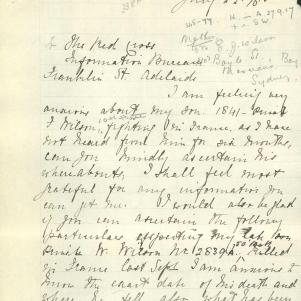 July 22
To The Red Cross
Information Bureau
Franklin St Adelaide
Mother
E. J. Wilson
Boyle St,
Mosman's Bay
Sydney
I am feeling very
anxious about my son. 1841
Wilson, fighting in France, as I have
not heard from him for six months,
can you kindly ascertain his
whereabouts, I shall feel most
grateful for any information you
can get me. I would also be glad
if you can ascertain the following
particulars respecting my late son
W. Wilson No 2839A, killed
in France last Sept I am anxious to
know the exact date of his death and
where he fell also where he has been